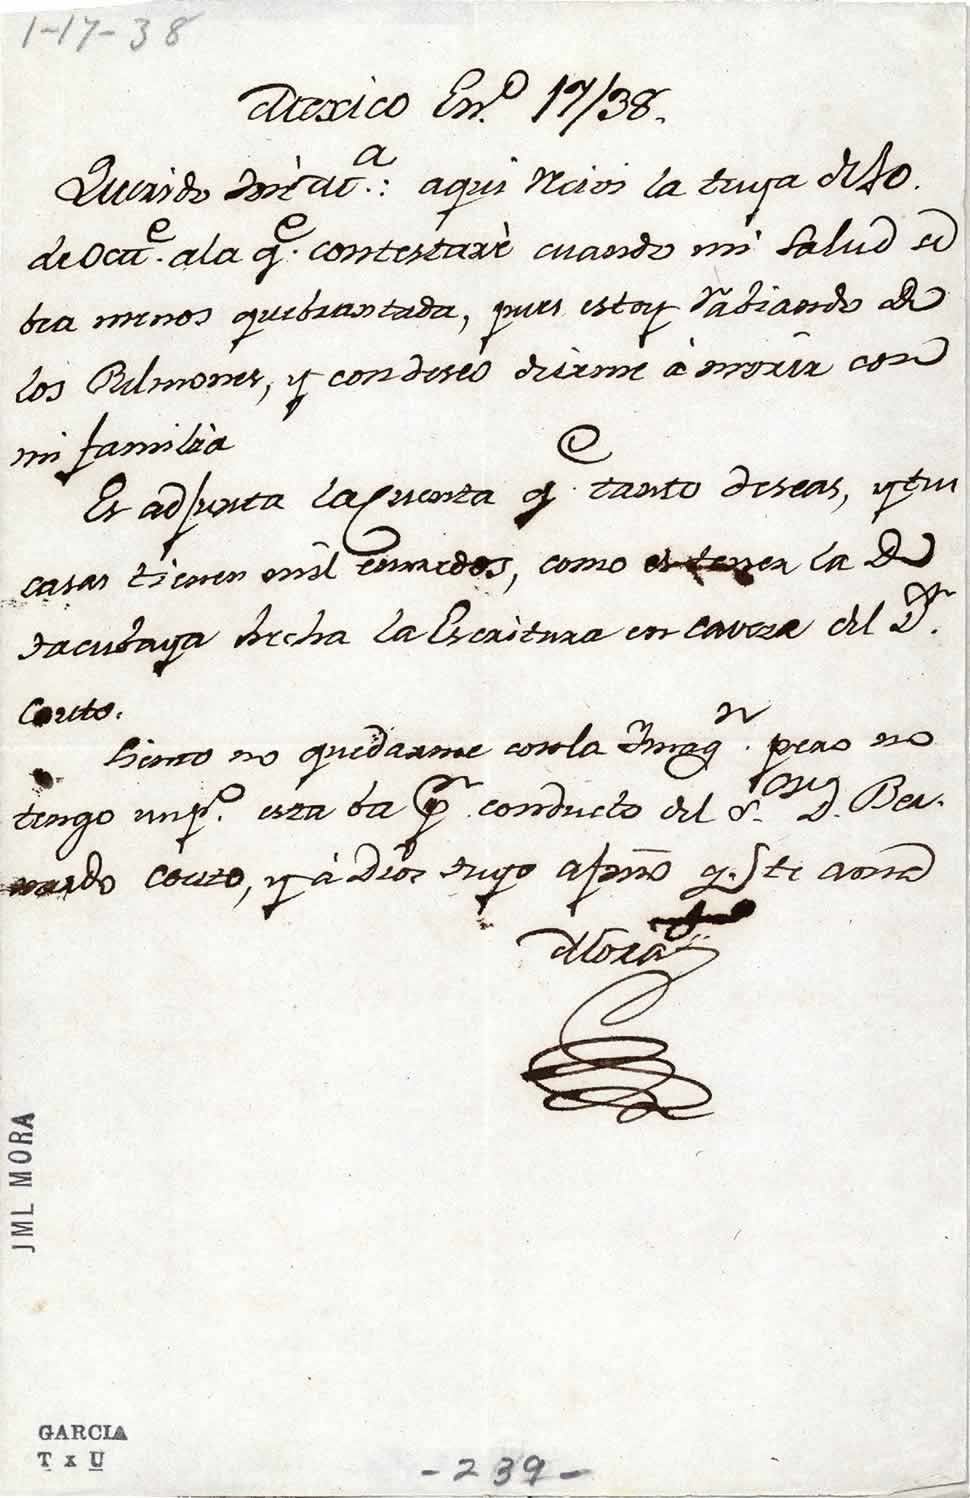 1-17-38
Mexico En.º 17/38.
Querido : aqui recivi la tuya del 10.
de Octe. a la qe. contestarè cuando mi Salud se
bea menos quebrantada, pues estoy rabiando de
los Pulmones, y con deseo de irme à morir con
mi familia
Es adjunta la Cuenta qe. tanto deseas, y tus
casas tienen mil enrredos, como es tener la de
Tacubaya hecha la Escritura en caveza del Dr.
Couto.
Siento no quedarme con la Ymagn. pero no
tengo un po. esta ba pr. conducto del Sor. D. Ber-
nardo Couto, y à Dios tuyo afmo q. te ama
Mora
JML MORA
GARCIA
T x U
-239-